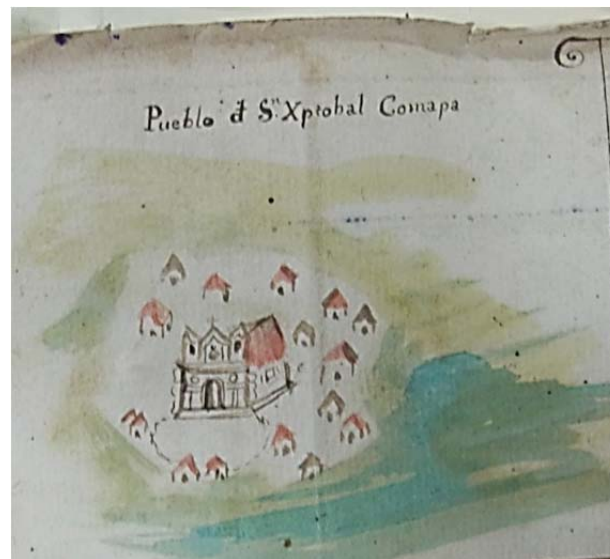 Pueblo đ Sⁿ. Xptobal Comapa